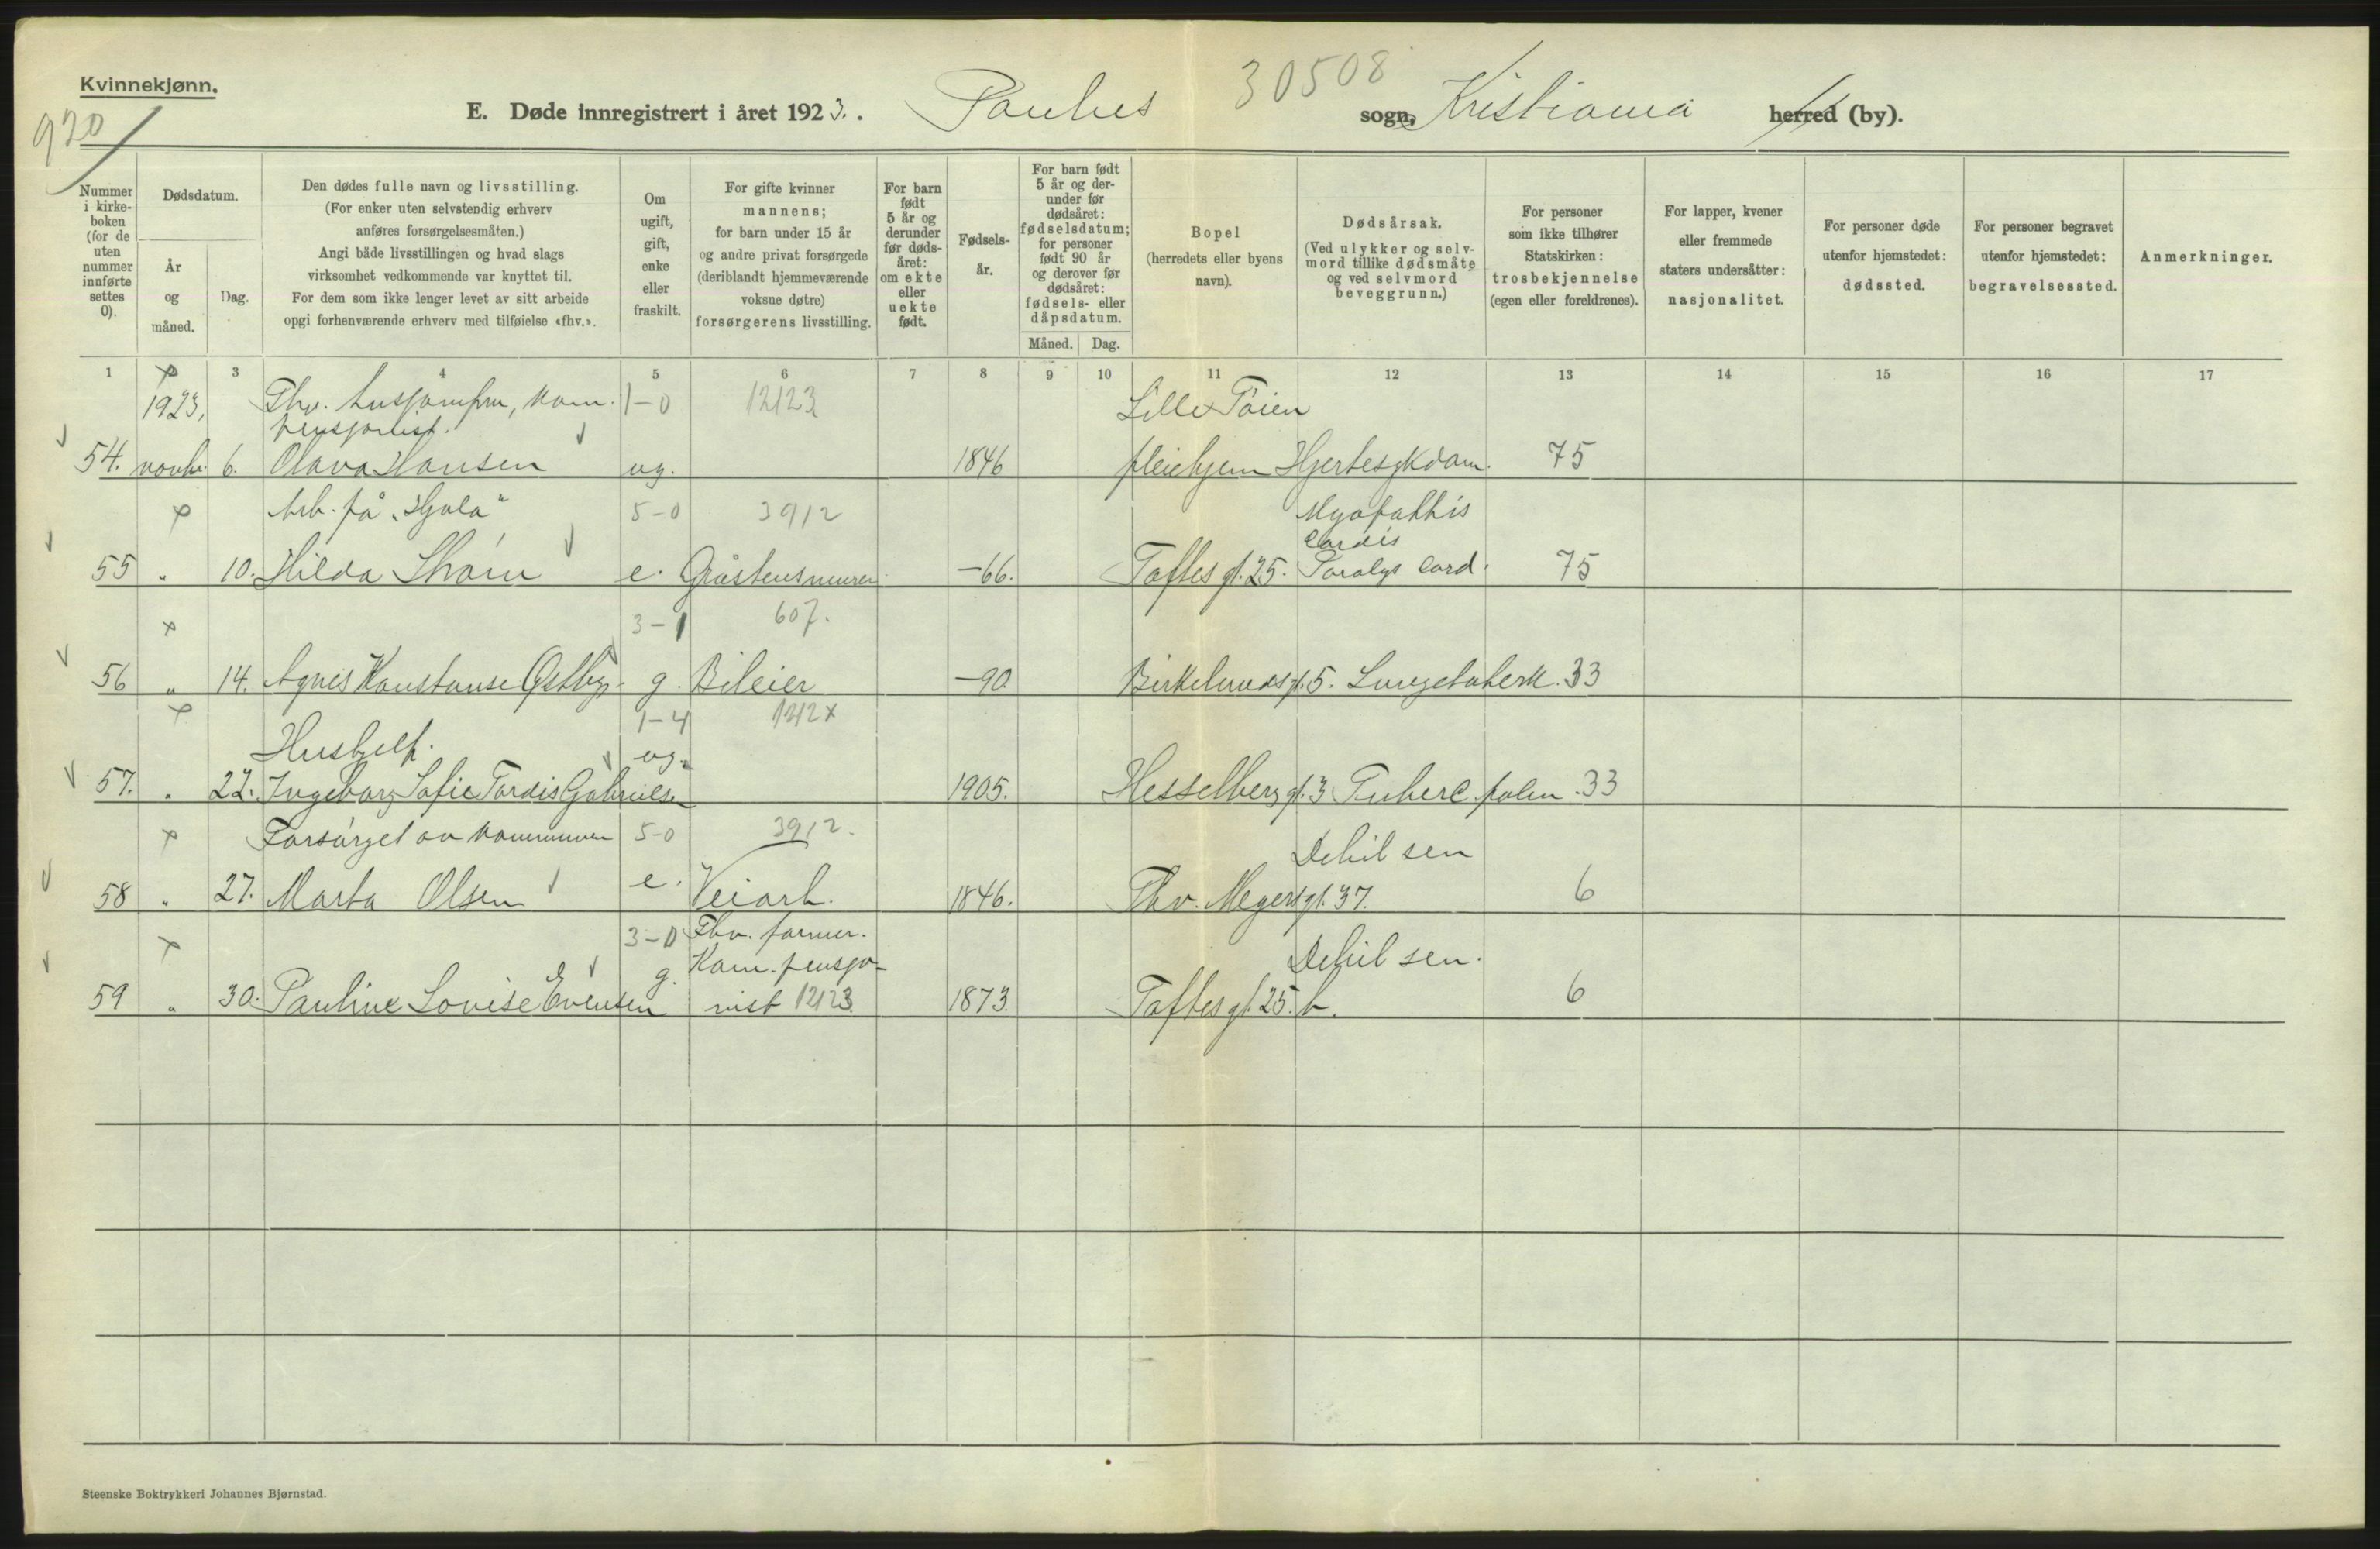 Kvinnekjønn.
920
E. Døde innregistrert i året 1923. Paulus 30508 sogn, Kristiania herred (by).
Nummer i kirke-boken (for de uten nummer innførte settes 0).
Dødsdatum.
År og måned.
Dag.
Den dødes fulle navn og livsstilling.
(For enker uten selvstendig erhverv
anføres forsørgelsesmåten.)
Angi både livsstillingen og hvad slags
virksomhet vedkommende var knyttet til.
For dem som ikke lenger levet av sitt arbeide
opgi forhenværende erhverv med tilføielse «fhv.».
Om ugift, gift, enke eller fraskilt.
For gifte kvinner
mannens;
for barn under 15 år
og andre privat forsørgede
(deriblandt hjemmeværende
voksne døtre)
forsørgerens livsstilling.
For barn født 5 år og derunder før døds-året: om ekte eller uekte født.
Fødsels-år.
For barn født
5 år og der-
under før
dødsåret:
fødselsdatum;
for personer
født 90 år
og derover før
dødsåret:
fødsels- eller
dåpsdatum.
Måned. Dag.
Bopel
(herredets eller byens
navn).
Dødsårsak.
(Ved ulykker og selv-
mord tillike dødsmåte
og ved selvmord
beveggrunn.)
For personer
som ikke tilhører
Statskirken:
trosbekjennelse
(egen eller foreldrenes).
For lapper, kvener
eller fremmede
staters undersåtter:
nasjonalitet.
For personer døde
utenfor hjemstedet:
dødssted.
For personer begravet
utenfor hjemstedet:
begravelsessted.
Anmerkninger.
1 3 4 5 6 7 8 9 10 11 12 13 14 15 16 17
1923, Fhv. husjomfru, kom. 1-0 12123 Lille Tøien
pensjonist.
54. novbr. 6. Olava Hansen ug. 1846 pleiehjem Hjertesykdom. 75
Arb. på "Hjula" 5-0 3912 Myopathis
cordis
55 " 10. Hilda Strøm e. Gråstensmurer -66. Toftes gt. 25. Paralys cord. 75
3-1 607.
56 " 14. Agnes Konstanse Østby g. Bileier -90. Birkelunds gt. 5. Lungetuberk. 33
1-4 1212x
Hushjelp. ug.
57. " 22. Ingeborg Sofie Tordis Gabrielsen 1905. Hesselbergs gt. 3 Tuberc. pulm. 33
Forsørget av kommunen 5-0 3912.
Debil sen
58 " 27. Marta Olsen e. Veiarb. 1846. Thv. Meyers gt. 37. 6
3-0 Fhv. former.
Kom. pensjo- Debil sen.
59 " 30. Pauline Lovise Evensen g. nist 12123. 1873. Toftes gt. 25. b. 6
Steenske Boktrykkeri Johannes Bjørnstad.